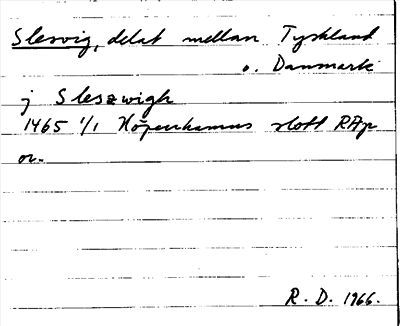 Slesvig, delat mellan Tyskland
o. Danmark
j Sleszwigh
1465 1/1 Köpenhamns slott RAp
or.
R. D. 1966.